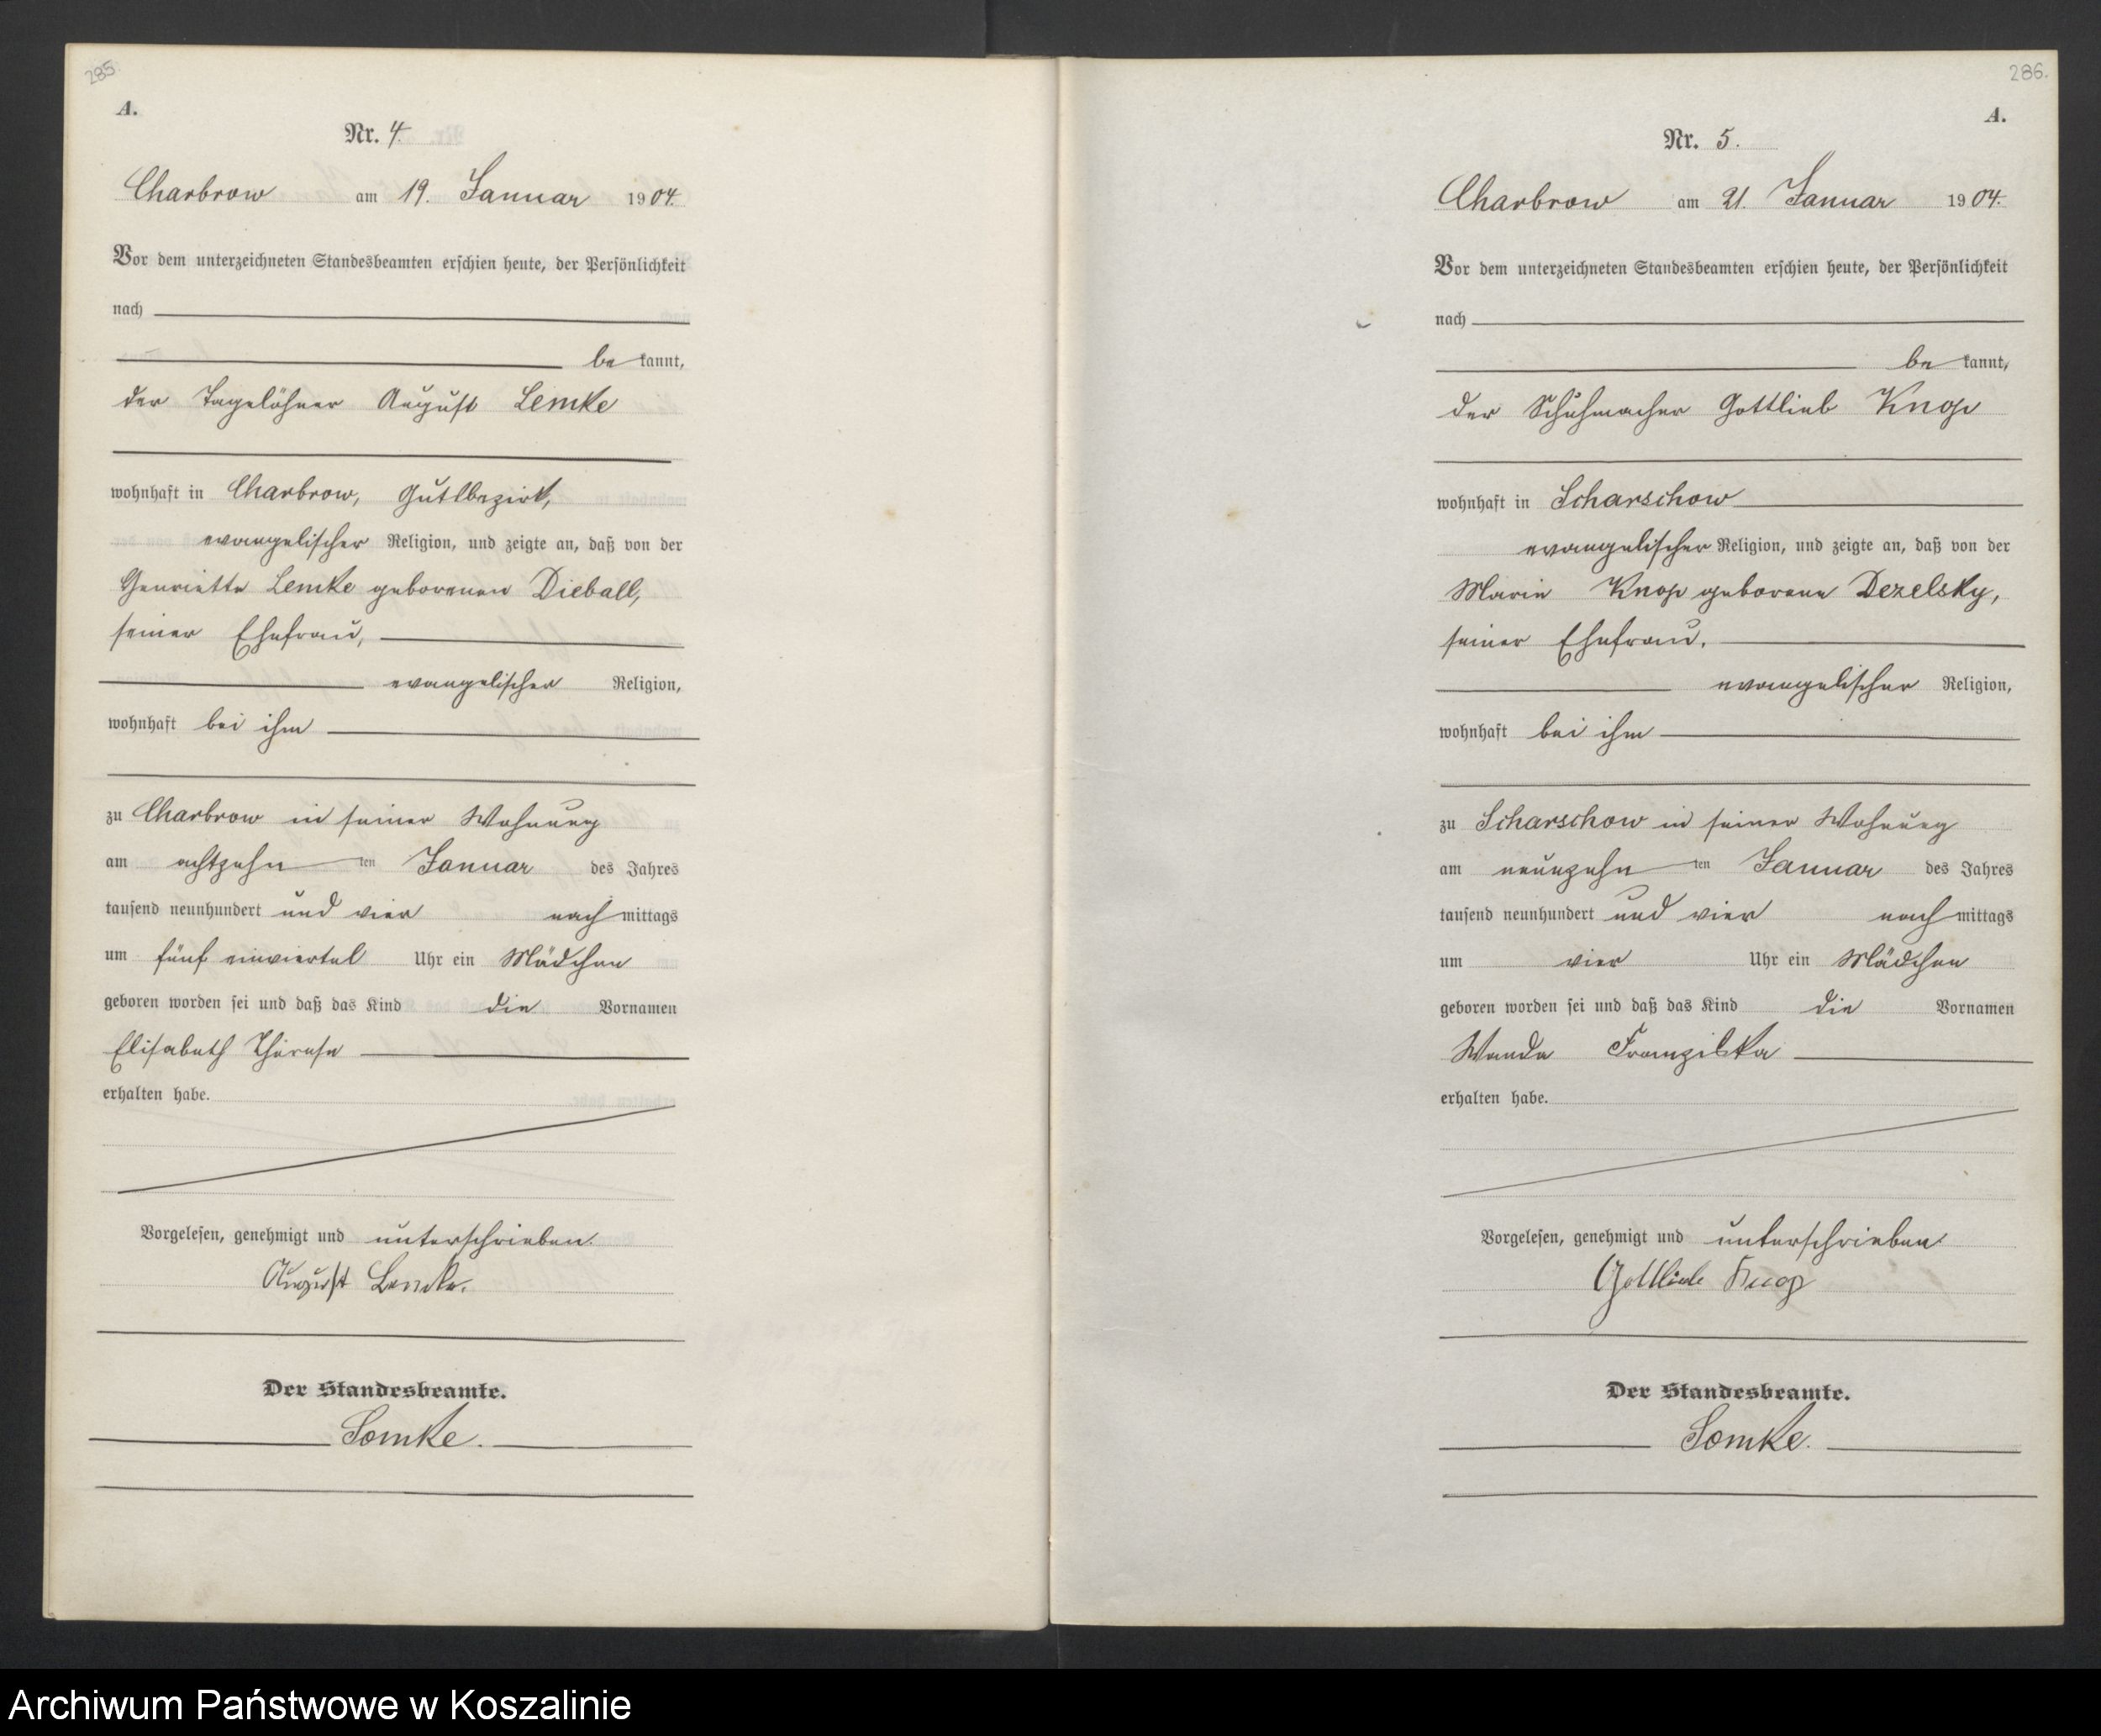 285.
A.
Nr. 4.
Charbrow am 19. Januar 1904.
Vor dem unterzeichneten Standesbeamten erschien heute, der Persönlichkeit
nach
be kannt,
der Tagelöhner August Lemke
wohnhaft in Charbrow, Gutsbezirk,
evangelischer Religion, und zeigte an, daß von der
Henriette Lemke geborenen Dieball,
seiner Ehefrau,
evangelischer Religion,
wohnhaft bei ihm
zu Charbrow in seiner Wohnung
am achtzehn ten Januar des Jahres
tausend neunhundert und vier nach mittags
um fünf einviertel Uhr ein Mädchen
geboren worden sei und daß das Kind die Vornamen
Elisabeth Therese
erhalten habe.
Vorgelesen, genehmigt und unterschrieben.
August Lemke.
Der Standesbeamte.
Somke.
286.
A.
Nr. 5.
Charbrow am 21. Januar 1904.
Vor dem unterzeichneten Standesbeamten erschien heute, der Persönlichkeit
nach
be kannt,
der Schuhmacher Gottlieb Knop
wohnhaft in Scharschow
evangelischer Religion, und zeigte an, daß von der
Marie Knop geborene Dezelsky,
seiner Ehefrau.
evangelischer Religion,
wohnhaft bei ihm
zu Scharschow in seiner Wohnung
am neunzehn ten Januar des Jahres
tausend neunhundert und vier nach mittags
um vier Uhr ein Mädchen
geboren worden sei und daß das Kind die Vornamen
Wanda Franziska
erhalten habe.
Vorgelesen, genehmigt und unterschrieben
Gottlieb Knop
Der Standesbeamte.
Somke.
Archiwum Państwowe w Koszalinie